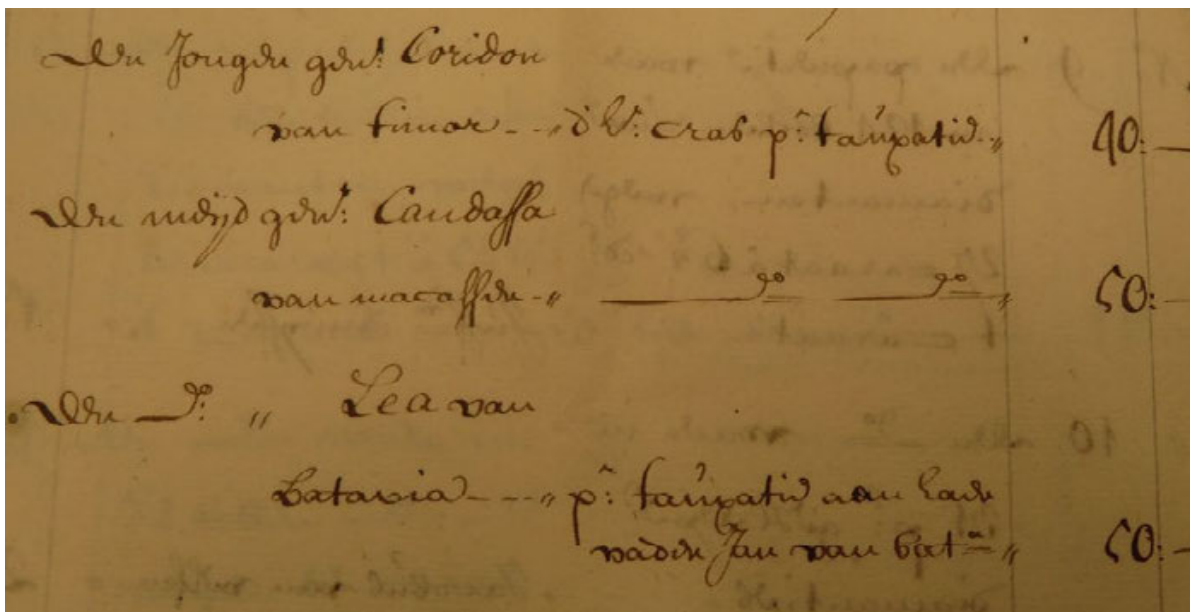 Een Jongen gent: Coridon
van timor - - " d'hr: Cras pr: tauxatie - " 40: —
Een meijd gent: Candassa
van macasser - " — do — do " 50: —
Een — do: " Lea van
batavia - - - " pr: tauxatie aan haar
vader Jan van bata " 50: -